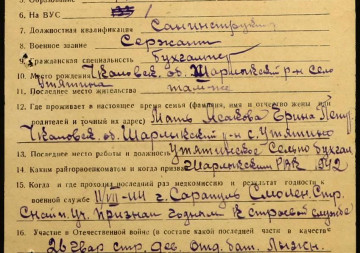 6. На ВУС
7. Должностная квалификация Санинструктор
8. Военное звание Сержант
9. Гражданская специальность Бухгалтер
10. Место рождения Чкаловск. об. Шарлыкский р-н село
11. Последнее место жительства там-же
12. Где проживает в настоящее время семья (фамилия, имя и отчество жены или
родителей и точный их адрес) Мать Ирина
Чкаловск. об. Шарлыкский р-н с.
13. Последнее место работы и должность сельпо бухгал
14. Каким райгорвоенкоматом и когда призван Шарлыкский РВК 1942
15. Когда и где проходил последний раз медкомиссию и результат годности к
военной службе г. Сарапул Смолен. Стр.
Признан годным к строевой службе
16. Участие в Отечественной войне (в составе какой последней части в качестве
26 гвар стр. див. Отд. бат.